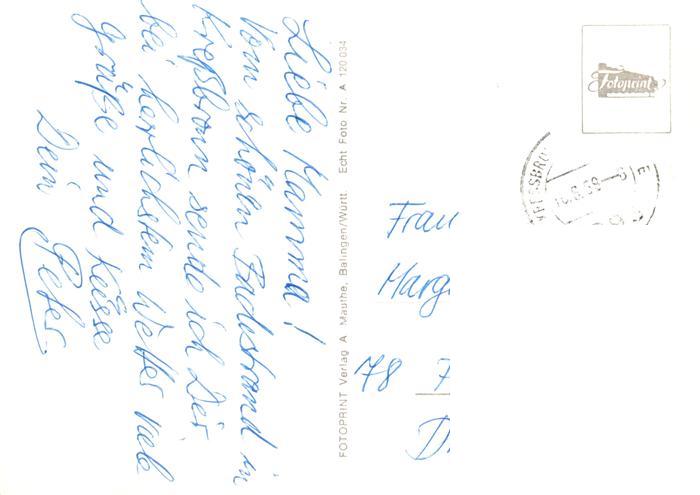 Liebe Mamma!
Vom schönen Badestrand in
Kreßbronn sende ich Dir
bei herrlichstem Wetter viele
Grüße und Küsse
Dein Peter.
FOTOPRINT Verlag A Mauthe, Balingen/Württ Echt Foto Nr. A 120 034
Fotoprint
Frau
Marg
78 7
D